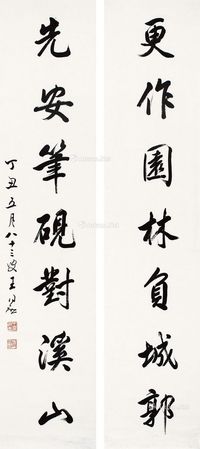 更作園林負城郭
先安筆硯對溪山
丁丑五月八十三叟王